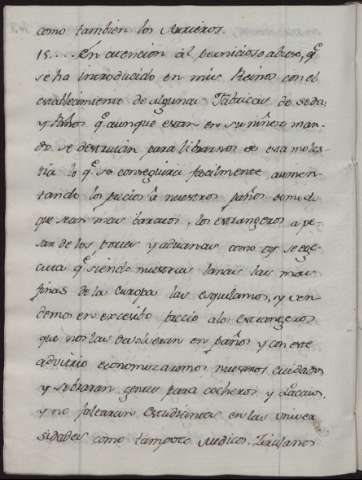 como tambien los Arrieros.
15.... En atencion al pernicioso abuso, q.e
se ha introducido en mis Reinos con el
establecimiento de algunas Fabricas de seda,
y Paños q.e aunque estan en su niñez man-
do se destruián para librarnos de esta moles-
tia lo q.e se conseguirá facilmente aumen-
tando los precios á nuestros paños de modo
que sean mas baratos, los extrangeros a pe-
sar de los portes y aduanas como oy se ege-
cuta q.e siendo nuestras lanas las mas
finas de la Europa las esquilamos, y ven-
demos en excesibo precio a los extrangeros
que nos las devolveran en paños y con este
advitrio economicaamos nuestros cuidados
y sobraran gentes para cocheros y Lacaios,
y no faltaran Estudiantes en las Univer
sidades como tampoco Medicos, Zirujanos